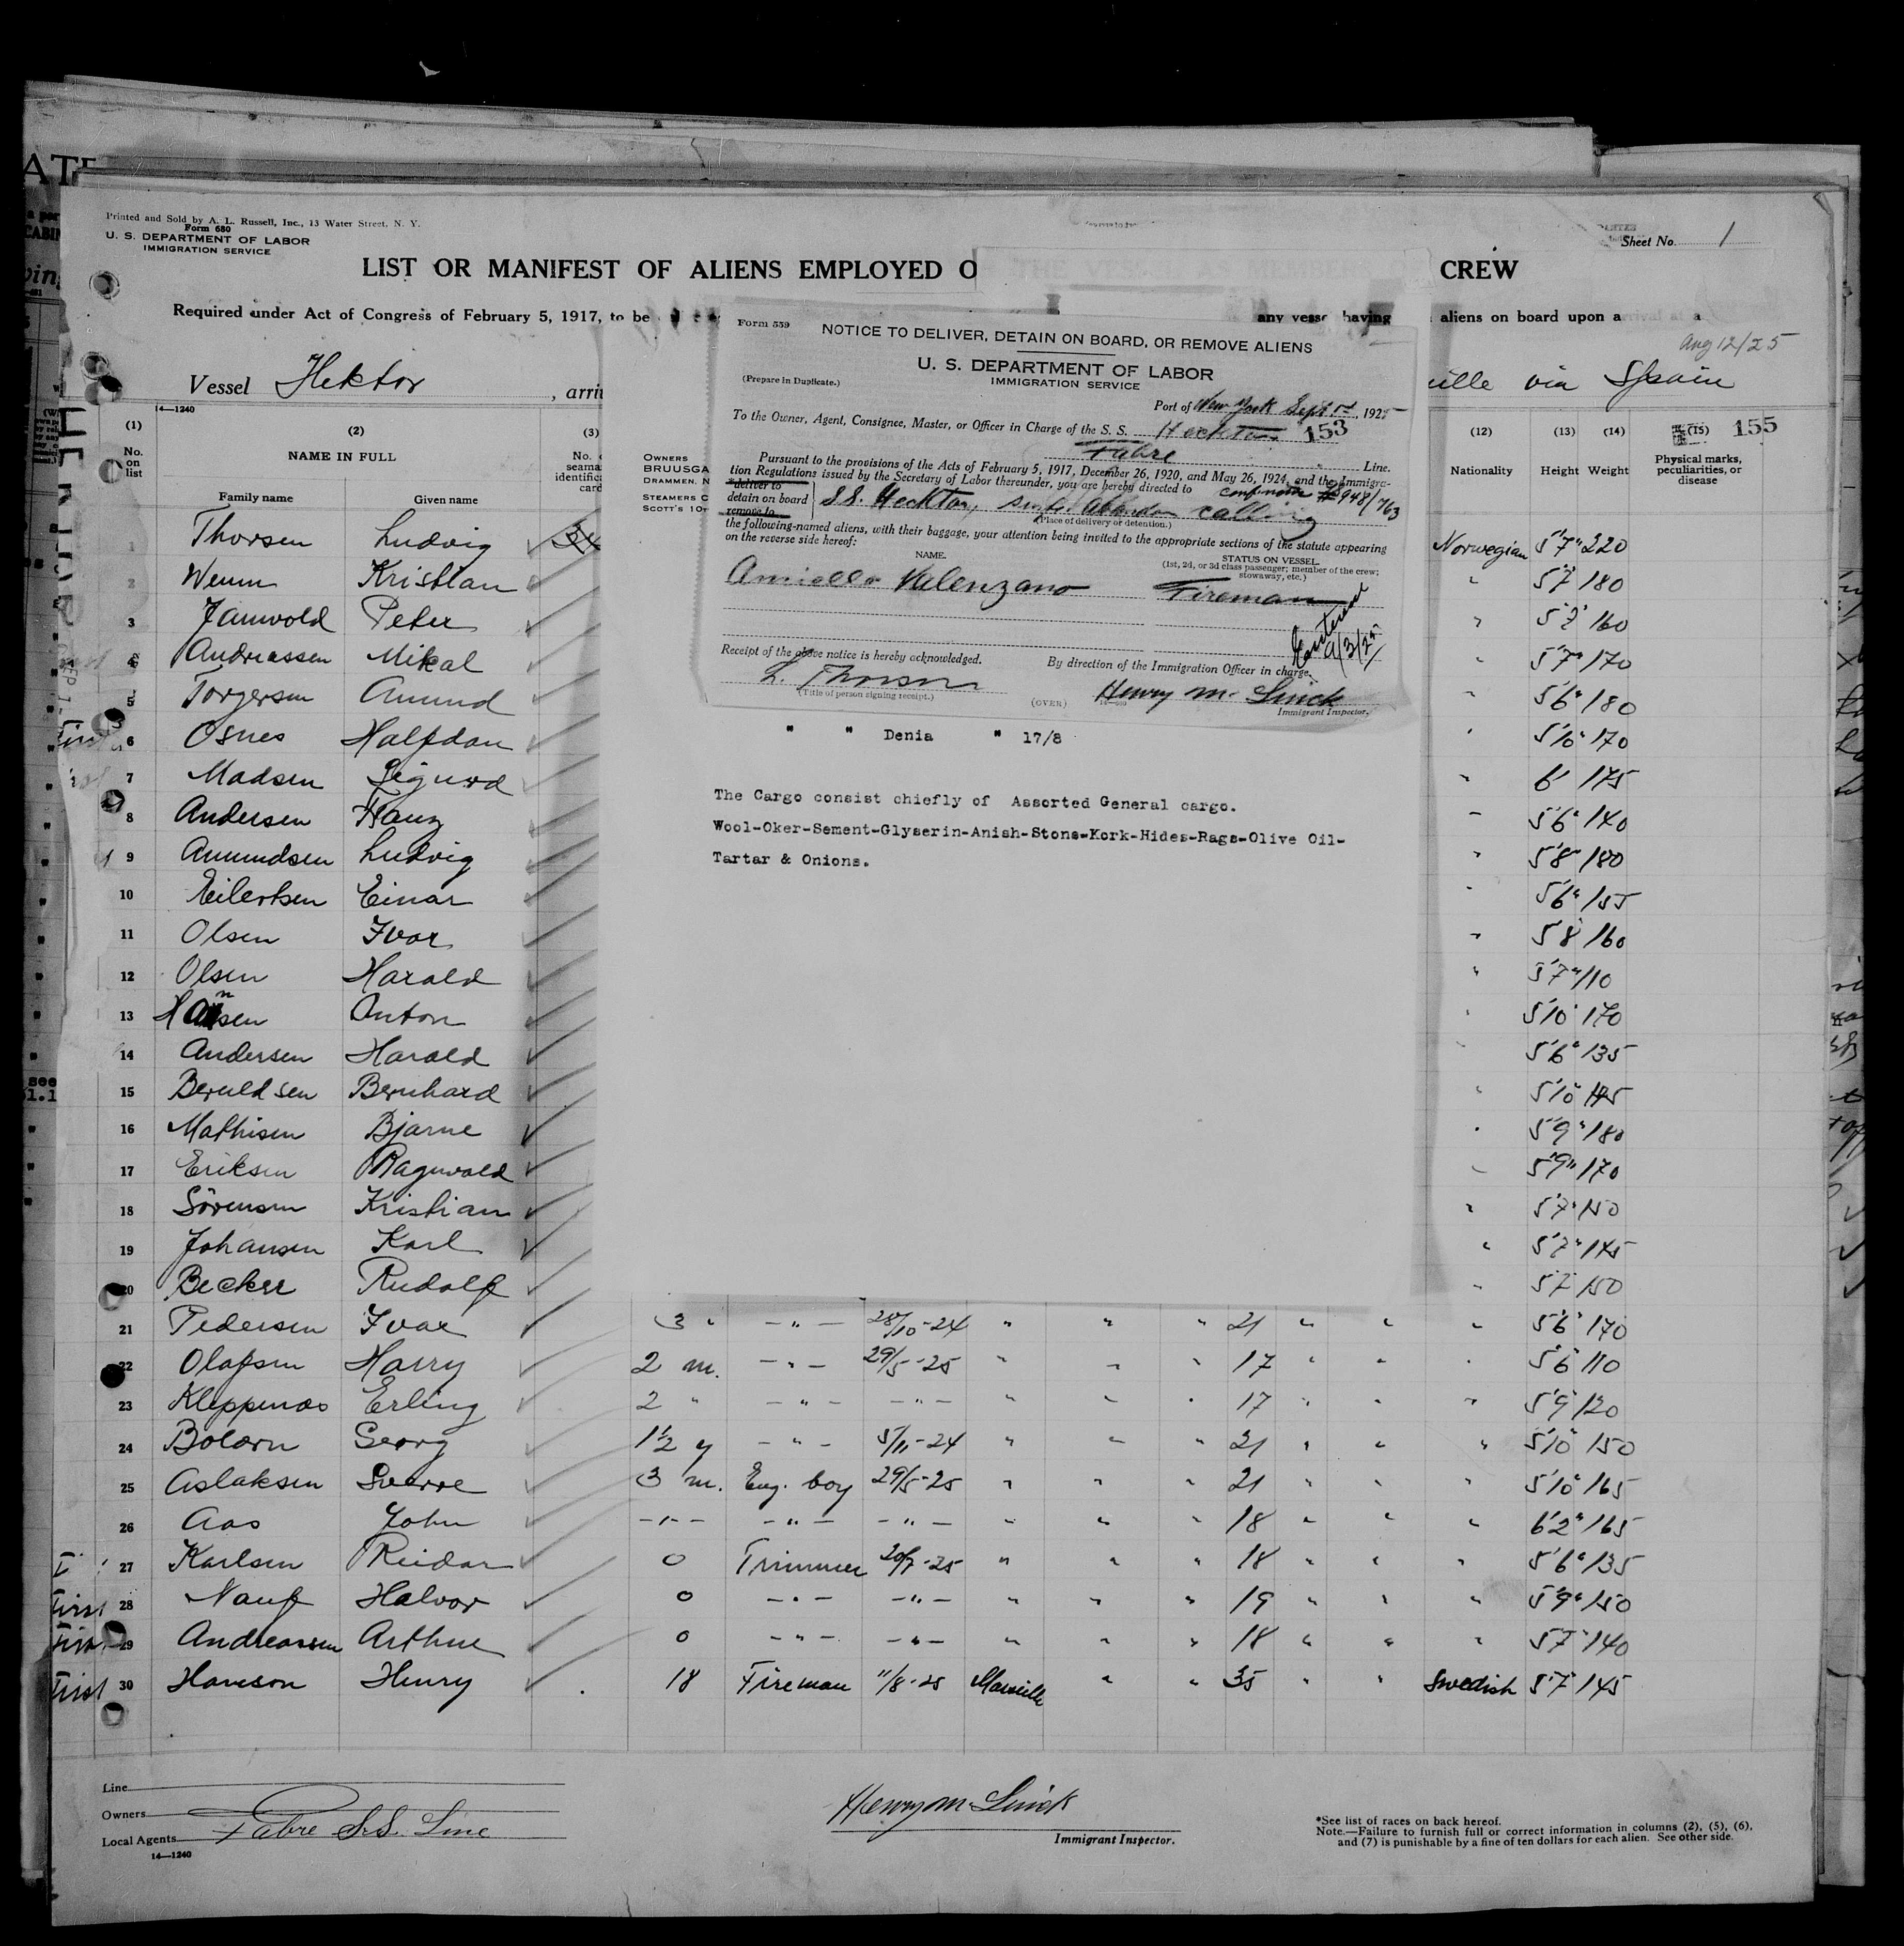 Printed and Sold by A. L. Russell, Inc., 13 Water Street, N. Y.
Form 680
U. S. DEPARTMENT OF LABOR
IMMIGRATION SERVICE
Sheet No. 1
LIST OR MANIFEST OF ALIENS EMPLOYED O CREW
Required under Act of Congress of February 5, 1917, to be any vesse having aliens on board upon a
Aug 12/25
Vessel Hektor, arri ille via Spain
14—1240
(1) (2) (3) (12) (13) (14) (15) 155
No. on list NAME IN FULL Nationality Height Weight Physical marks, peculiarities, or disease
Family name Given name
OWNERS
BRUUSGA
DRAMMEN, N
STEAMERS C
SCOTT'S 10
Form 559
NOTICE TO DELIVER, DETAIN ON BOARD, OR REMOVE ALIENS
U. S. DEPARTMENT OF LABOR
IMMIGRATION SERVICE
(Prepare in Duplicate.)
Port of New York Sept , 1925
To the Owner, Agent, Consignee, Master, or Officer in Charge of the S. S. Hecktor 153
Fabre Line.
Pursuant to the provisions of the Acts of February 5, 1917, December 26, 1920, and May 26, 1924, and the Immigra-
tion Regulations issued by the Secretary of Labor thereunder, you are hereby directed to
deliver to
detain on board
remove to
S.S. Hecktor, calling 948/763
(Place of delivery or detention.)
the following-named aliens, with their baggage, your attention being invited to the appropriate sections of the statute appearing
on the reverse side hereof:
NAME. STATUS ON VESSEL.
(1st, 2d, or 3d class passenger; member of the crew; stowaway, etc.)
Aniello Valenzano Fireman
9/3/25
Receipt of the above notice is hereby acknowledged. By direction of the Immigration Officer in charge,
L. Thorsen Henry M. Linick
(Title of person signing receipt.) (OVER) Immigrant Inspector.
" " Denia " 17/8
The Cargo consist chiefly of Assorted General cargo.
Wool-Oker-Sement-Glyserin-Anish-Stone-Kork-Hides-Rags-Olive Oil-
Tartar & Onions.
1 Thorsen Ludvig Norwegian 5'7" 220
2 Wenn Kristian " 5'7 180
3 Jamvold Peter " 5'7" 160
4 Andreassen Mikal " 5'7" 170
5 Torgersen Amund " 5'6" 180
6 Osnes Halfdan " 5'10" 170
7 Madsen Sigurd " 6' 175
8 Andersen Hans " 5'6" 140
9 Amundsen Ludvig " 5'8" 180
10 Eilertsen Einar " 5'6" 155
11 Olsen Ivar " 5'8 160
12 Olsen Harald " 5'7" 110
13 Hansen Anton " 5'10" 170
14 Andersen Harald " 5'6" 135
15 Beruldsen Bernhard " 5'10"
16 Mathisen Bjarne " 5'9" 180
17 Eriksen Ragnvald " 5'9" 170
18 Sörensen Kristian " 5'7" 150
19 Johansen Karl " 5'7" 145
20 Becker Rudolf " 5'7 150
21 Pedersen Ivar 3 " —"— 28/10-24 " " " 21 " " " 5'6" 170
22 Olafsen Harry 2 m. —"— 29/5-25 " " " 17 " " " 5'6" 110
23 Kleppenæs Erling 2 " —"— —"— " " " 17 " " " 5'9" 120
24 Georg 1½ y —"— 5/11-24 " " " 21 " " " 5'10" 150
25 Aslaksen Sverre 3 m. Eng. boy 29/5-25 " " " 21 " " " 5'10" 165
26 Aas John —"— —"— —"— " " " 18 " " " 6'2" 165
27 Karlsen Reidar 0 Trimmer 20/7-25 " " " 18 " " " 5'6" 135
First 28 Nauf Halvor 0 —"— —"— " " " 19 " " " 5'9" 150
First 29 Andreassen Arthur 0 —"— —"— " " " 18 " " " 5'7" 140
First 30 Hanson Henry 18 Fireman 11/8-25 Marseille " " 35 " " Swedish 5'7" 145
Line
Owners
Local Agents Fabre S.S. Line
14—1240
Henry M. Linick
Immigrant Inspector.
*See list of races on back hereof.
Note.—Failure to furnish full or correct information in columns (2), (5), (6),
and (7) is punishable by a fine of ten dollars for each alien. See other side.